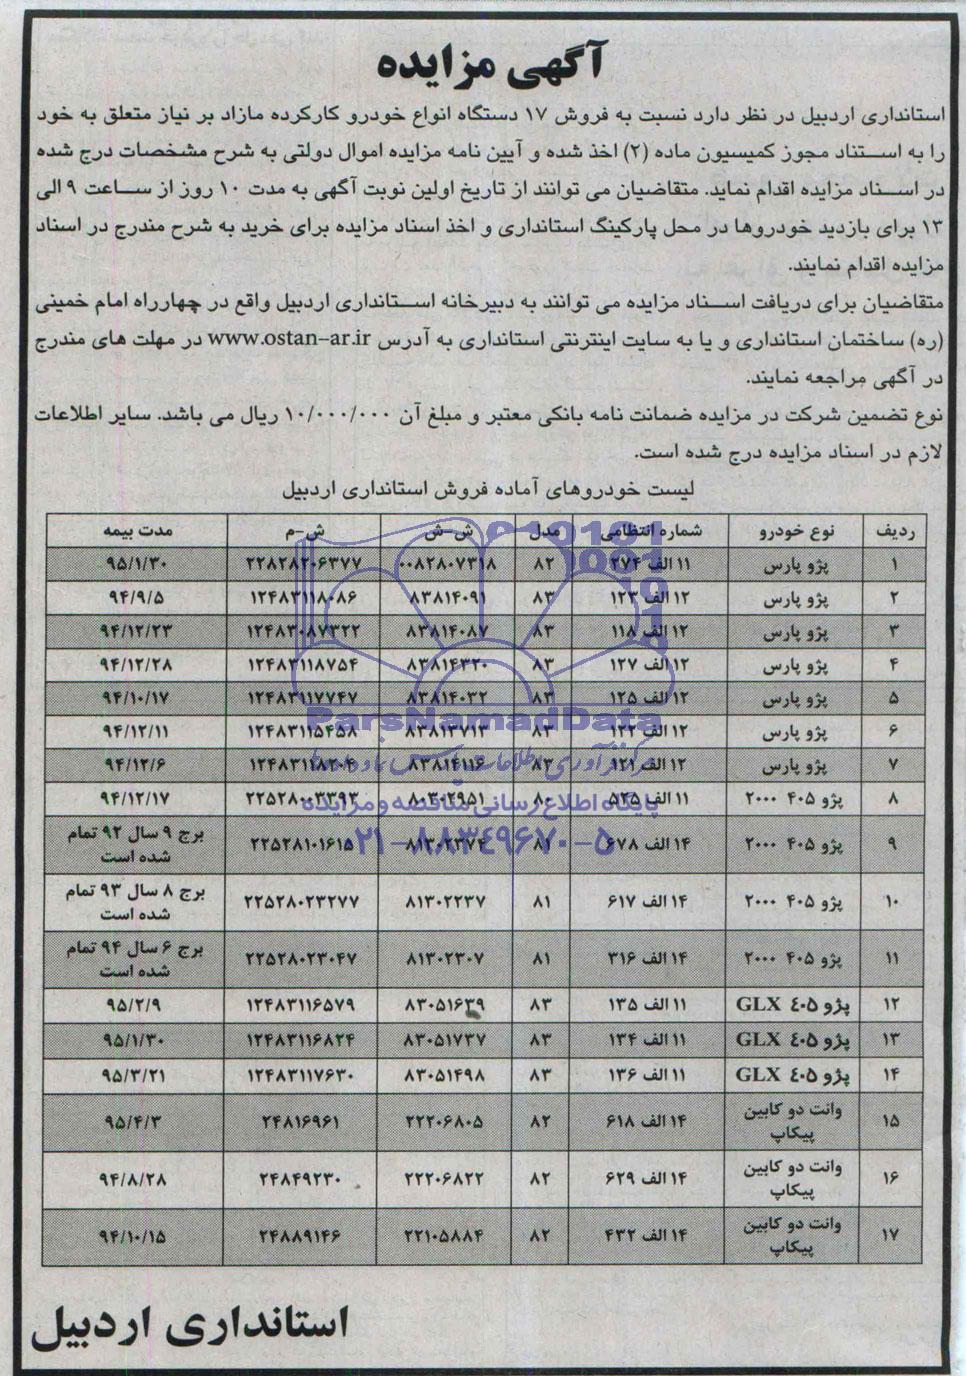 آگهی مزایده
استانداری اردبیل در نظر دارد نسبت به فروش ۱۷ دستگاه انواع خودرو کارکرده مازاد بر نیاز متعلق به خود
را به استناد مجوز کمیسیون ماده (۲) اخذ شده و آیین نامه مزایده اموال دولتی به شرح مشخصات درج شده
در اسناد مزایده اقدام نماید. متقاضیان می توانند از تاریخ اولین نوبت آگهی به مدت ۱۰ روز از ساعت ۹ الی
۱۳ برای بازدید خودروها در محل پارکینگ استانداری و اخذ اسناد مزایده برای خرید به شرح مندرج در اسناد
مزایده اقدام نمایند.
متقاضیان برای دریافت اسناد مزایده می توانند به دبیرخانه استانداری اردبیل واقع در چهارراه امام خمینی
(ره) ساختمان استانداری و یا به سایت اینترنتی استانداری به آدرس www.ostan-ar.ir در مهلت های مندرج
در آگهی مراجعه نمایند.
نوع تضمین شرکت در مزایده ضمانت نامه بانکی معتبر و مبلغ آن ۱۰/۰۰۰/۰۰۰ ریال می باشد. سایر اطلاعات
لازم در اسناد مزایده درج شده است.
لیست خودروهای آماده فروش استانداری اردبیل
ردیف نوع خودرو شماره انتظامی مدل ش-ش ش-م مدت بیمه
۱ پژو پارس ۱۱ الف ۲۷۴ ۸۲ ۰۰۸۲۸۰۷۳۱۸ ۲۲۸۲۸۲۰۶۳۷۷ ۹۵/۱/۳۰
۲ پژو پارس ۱۲ الف ۱۲۳ ۸۳ ۸۳۸۱۴۰۹۱ ۱۲۴۸۳۱۱۸۰۸۶ ۹۴/۹/۵
۳ پژو پارس ۱۲ الف ۱۱۸ ۸۳ ۸۳۸۱۴۰۸۷ ۱۲۴۸۳۰۸۷۳۲۲ ۹۴/۱۲/۲۳
۴ پژو پارس ۱۲ الف ۱۲۷ ۸۳ ۸۳۸۱۴۳۲۰ ۱۲۴۸۳۱۱۸۷۵۴ ۹۴/۱۲/۲۸
۵ پژو پارس ۱۲ الف ۱۲۵ ۸۳ ۸۳۸۱۴۰۳۲ ۱۲۴۸۳۱۱۷۷۴۷ ۹۴/۱۰/۱۷
۶ پژو پارس ۱۲ الف ۱۲۲ ۸۳ ۸۳۸۱۳۷۱۳ ۱۲۴۸۳۱۱۵۴۵۸ ۹۴/۱۲/۱۱
۷ پژو پارس ۱۲ الف ۱۲۱ ۸۳ ۸۳۸۱۴۱۱۶ ۱۲۴۸۳۱۱۸۲۰۴ ۹۴/۱۲/۶
۸ پژو ۴۰۵ ۲۰۰۰ ۱۱ الف ۵۲۵ ۸۰ ۸۰۳۰۲۹۵۱ ۲۲۵۲۸۰۰۳۳۹۳ ۹۴/۱۲/۱۷
۹ پژو ۴۰۵ ۲۰۰۰ ۱۴ الف ۶۷۸ ۸۱ ۸۱۳۰۲۳۷۴ ۲۲۵۲۸۱۰۱۶۱۵ برج ۹ سال ۹۲ تمام
شده است
۱۰ پژو ۴۰۵ ۲۰۰۰ ۱۴ الف ۶۱۷ ۸۱ ۸۱۳۰۲۲۳۷ ۲۲۵۲۸۰۲۳۲۷۷ برج ۸ سال ۹۳ تمام
شده است
۱۱ پژو ۴۰۵ ۲۰۰۰ ۱۴ الف ۳۱۶ ۸۱ ۸۱۳۰۲۳۰۷ ۲۲۵۲۸۰۲۳۰۴۷ برج ۶ سال ۹۴ تمام
شده است
۱۲ پژو ٤٠٥ GLX ۱۱ الف ۱۳۵ ۸۳ ۸۳۰۵۱۶۳۹ ۱۲۴۸۳۱۱۶۵۷۹ ۹۵/۲/۹
۱۳ پژو ٤٠٥ GLX ۱۱ الف ۱۳۴ ۸۳ ۸۳۰۵۱۷۳۷ ۱۲۴۸۳۱۱۶۸۲۴ ۹۵/۱/۳۰
۱۴ پژو ٤٠٥ GLX ۱۱ الف ۱۳۶ ۸۳ ۸۳۰۵۱۴۹۸ ۱۲۴۸۳۱۱۷۶۳۰ ۹۵/۳/۲۱
۱۵ وانت دو کابین
پیکاپ ۱۴ الف ۶۱۸ ۸۲ ۲۲۲۰۶۸۰۵ ۲۴۸۱۶۹۶۱ ۹۵/۴/۳
۱۶ وانت دو کابین
پیکاپ ۱۴ الف ۶۲۹ ۸۲ ۲۲۲۰۶۸۲۲ ۲۴۸۴۹۲۳۰ ۹۴/۸/۲۸
۱۷ وانت دو کابین
پیکاپ ۱۴ الف ۴۳۲ ۸۲ ۲۲۱۰۵۸۸۴ ۲۴۸۸۹۱۴۶ ۹۴/۱۰/۱۵
ParsNamadData
پایگاه اطلاع رسانی مناقصه و مزایده
۰۲۱-۸۸۳۴۹۶۷۰-۵
استانداری اردبیل